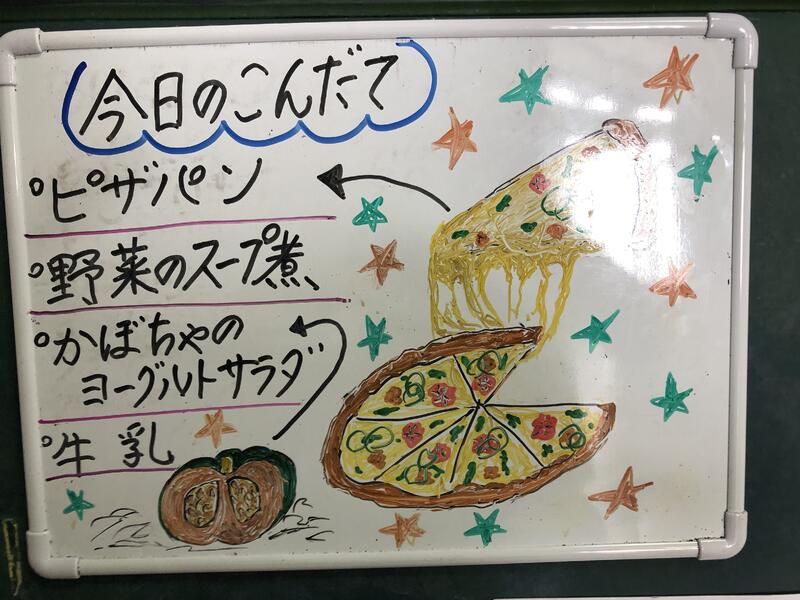 今日のこんだて
°ピザパン
°野菜のスープ煮
°かぼちゃの
ヨーグルトサラダ
°牛乳